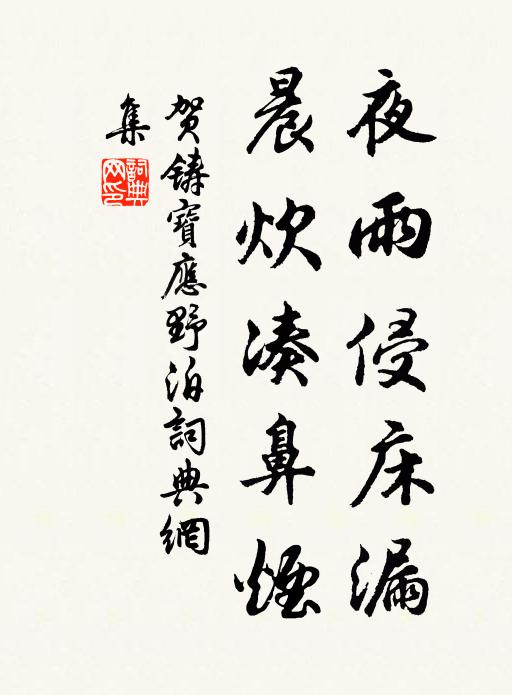 夜雨侵床漏
晨炊湊鼻煙
賀鑄寶應野泊詞典網
集
詞典網印